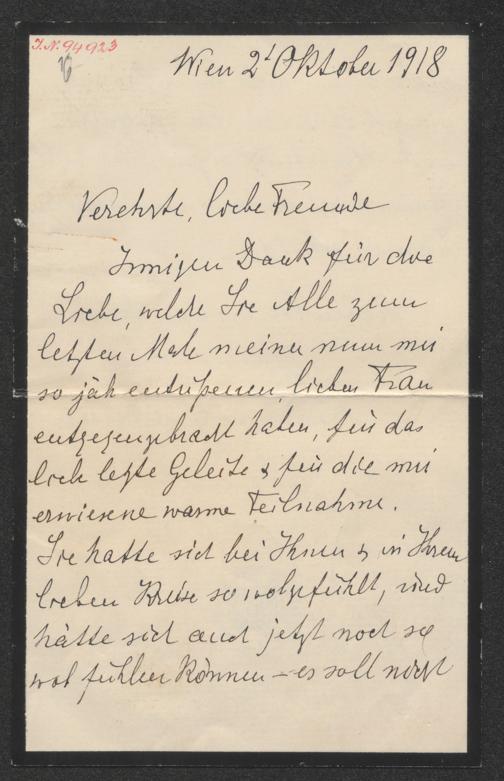 I.N. 94923
Wien 2' Oktober 1918
Verehrte, liebe Freunde
Innigen Dank für die
Liebe, welche Sie Alle zum
letzten Male meiner nun mir
so jäh entrißenen, lieben Frau
entgegengebracht haben, für das
liebe letzte Geleite & für die mir
erwiesene warme Teilnahme.
Sie hatte sich bei Ihnen & in Ihrem
lieben Kreise so wolgefühlt, und
hätte sich auch jetzt noch so
wol fühlen können – es soll nicht